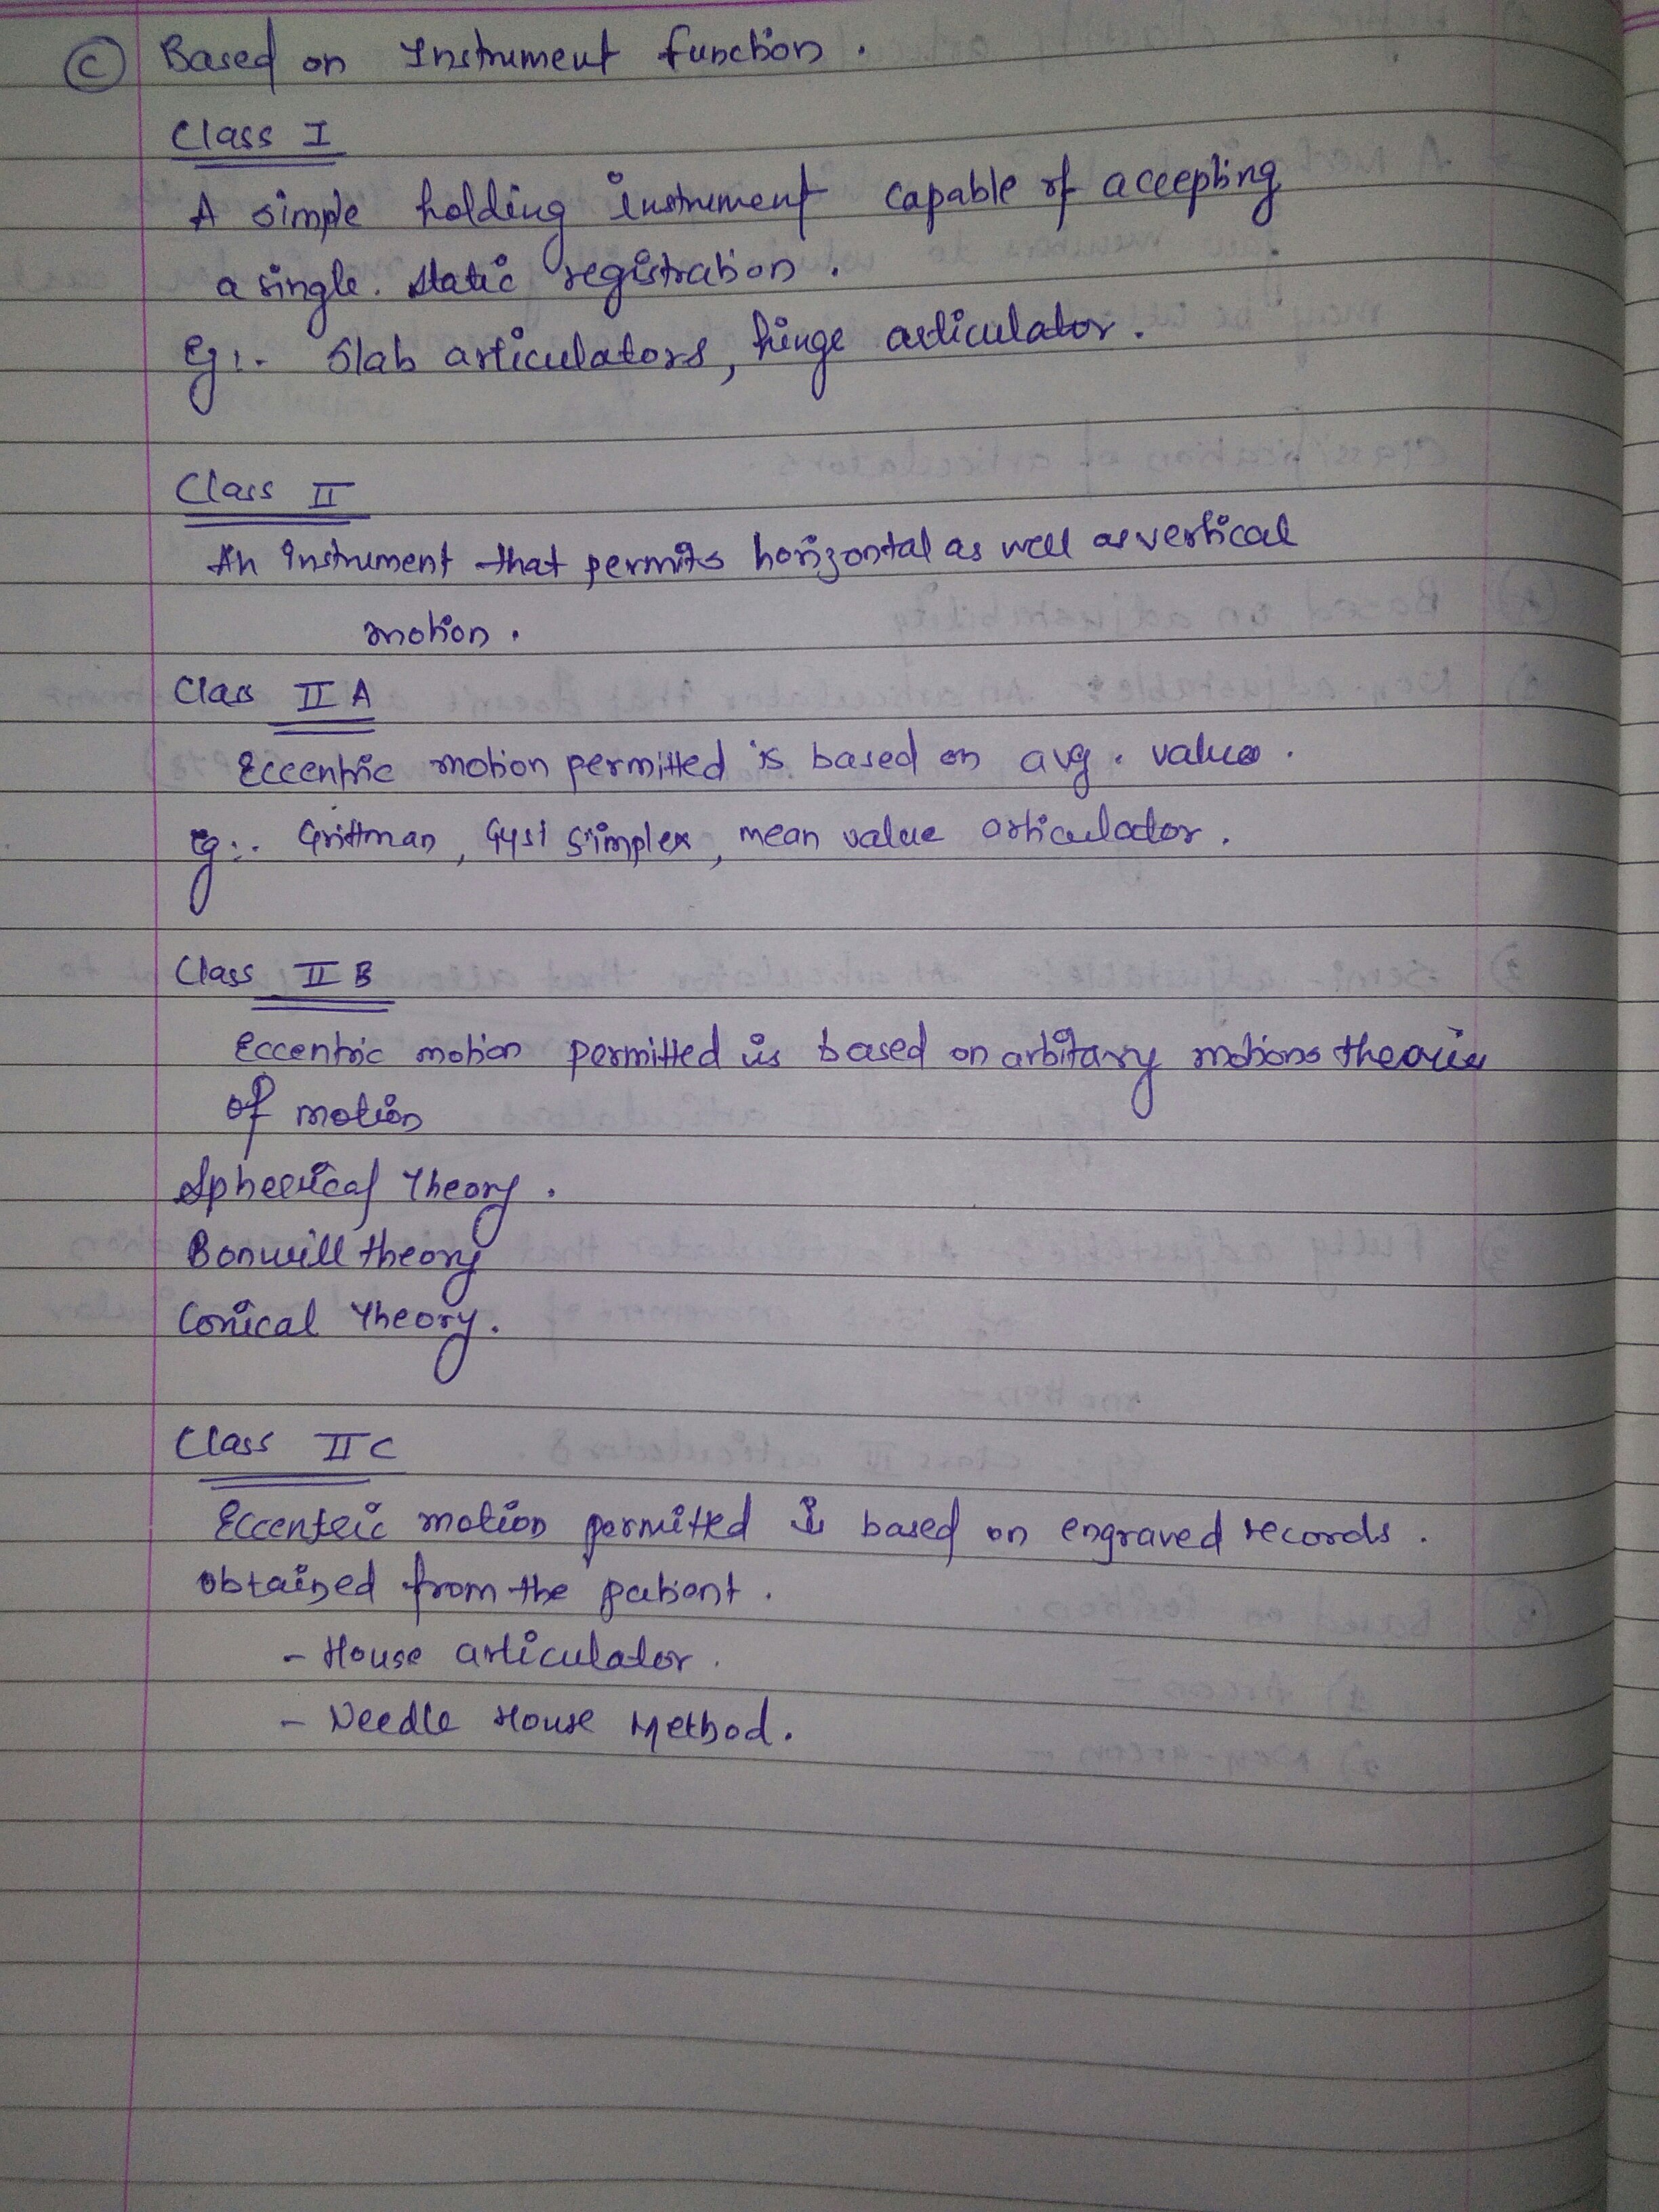 C Based on Instrument function.
Class I
A simple holding instrument capable of accepting
a single. static registration.
Eg:- Slab articulators, hinge articulator.
Class II
An Instrument that permits horizontal as well as vertical
motion.
Class II A
Eccentric motion permitted is based on avg. value.
eg:- Grittman, Gysi Simplex, mean value articulator.
Class II B
Eccentric motion permitted is based on arbitary motions theories
of motion
Spherical Theory.
Bonwill theory
Conical Theory.
Class II C
Eccentric motion permitted is based on engraved records.
obtained from the patient.
- House articulator.
- Needle House Method.